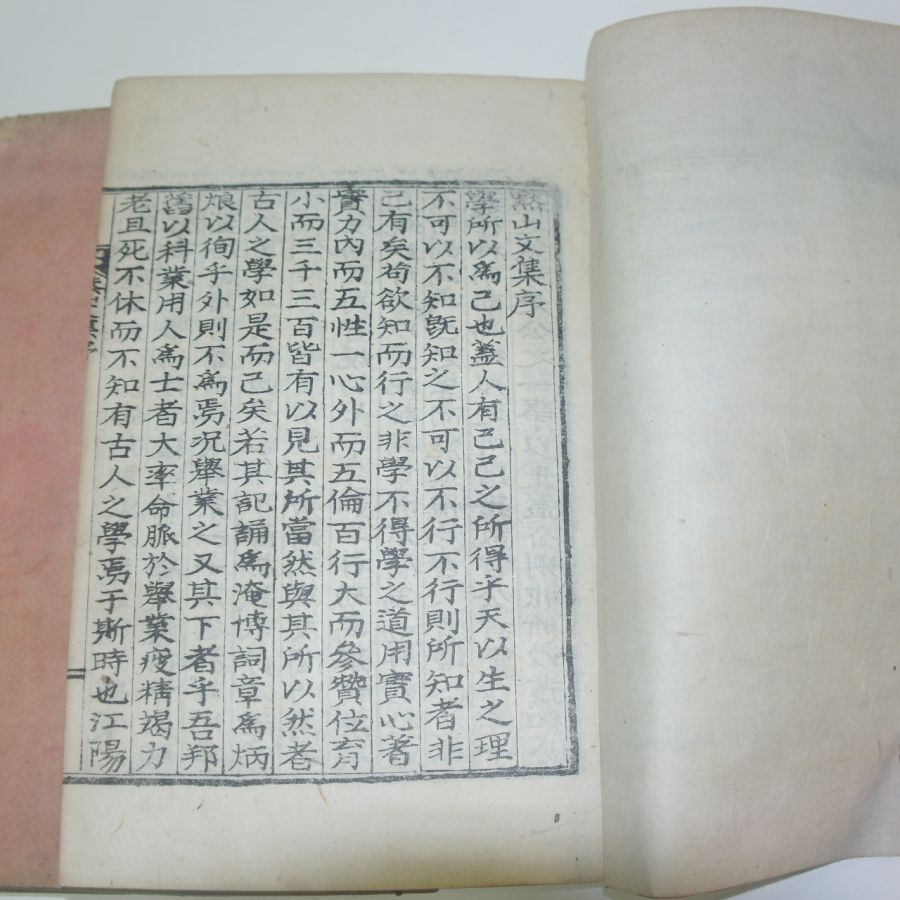 山文集序
學所以爲己也蓋人有己己之所得乎天以生之理
不可以不知旣知之不可以不行不行則所知者非
己有矣苟欲知而行之非學不得學之道用實心著
實力內而五性一心外而五倫百行大而參贊位育
小而三千三百皆有以見其所當然與其所以然者
古人之學如是而已矣若其記誦爲淹博詞章爲炳
烺以徇乎外則不爲焉況擧業之又其下者乎吾邦
舊以科業用人爲士者大率命脈於擧業疲精竭力
老且死不休而不知有古人之學焉于斯時也江陽